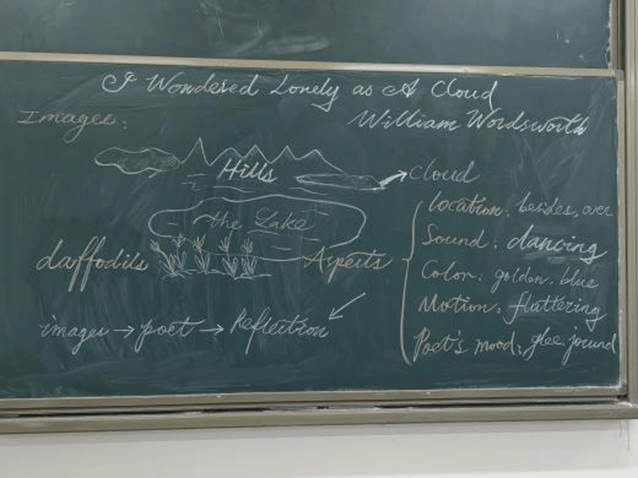 I Wondered Lonely as A Cloud
William Wordsworth
Images:
Hills
cloud
the Lake
daffodils
Aspects
location: besides, over
Sound: dancing
Color: golden, blue
Motion: fluttering
Poet's mood: glee, jocund
images → poet → Reflection